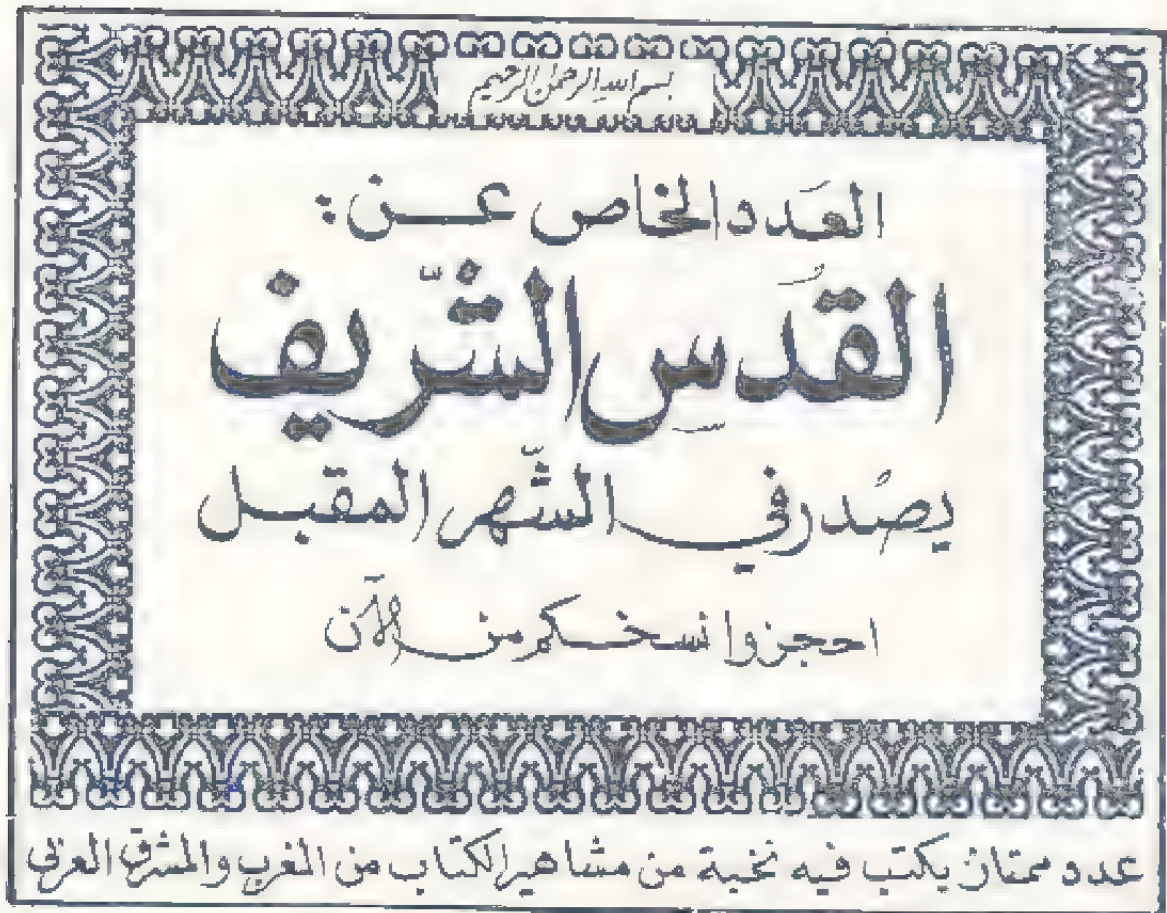 بسم الله الرحمن الرحيم
العَدد الخاص عن:
القُدسِ الشّريف
يصْدر في الشّهر المقبل
احجزوا نسخكم من الآن
عدد ممتاز يكتب فيه نخبة من مشاهير الكتاب من المغرب والمشرق العربي